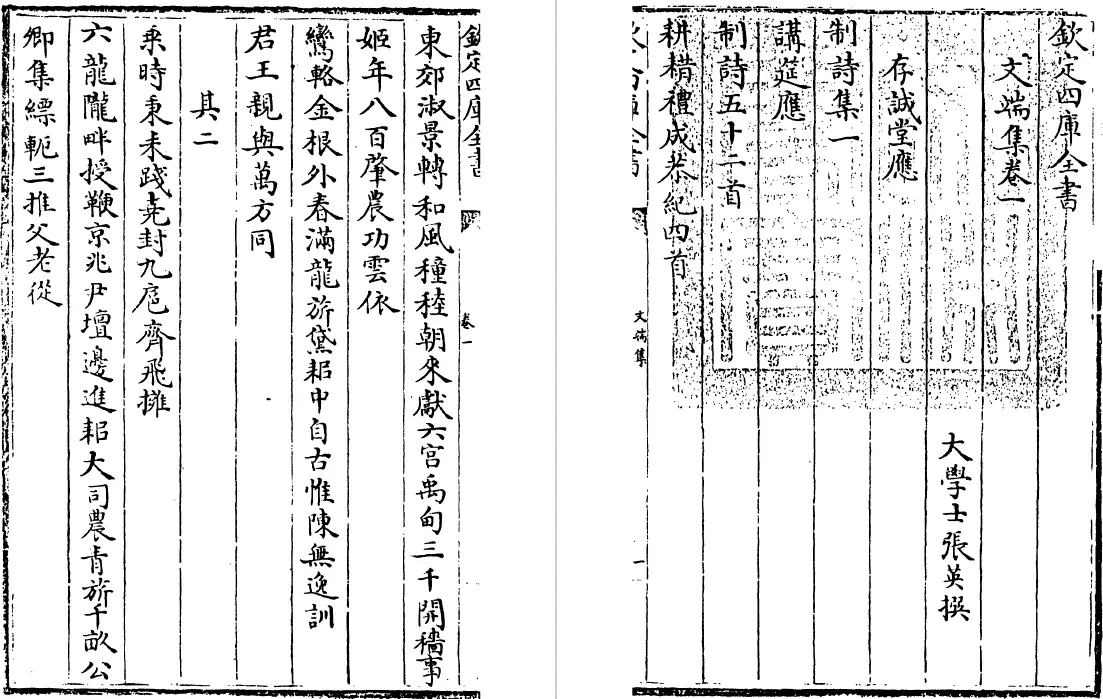 欽定四庫全書
文端集卷一
大學士張英撰
存誠堂應
制詩集一
講筵應
制詩五十二首
耕耤禮成恭紀四首
文端集
一
欽定四庫全書
卷一
東郊淑景轉和風穜稑朝來獻六宮禹甸三千開穡事
姬年八百肇農功雲依
鸞輅金根外春滿龍旂黛耜中自古惟陳無逸訓
君王親與萬方同
其二
乘時秉耒踐堯封九扈齊飛擁
六龍隴畔授鞭京兆尹壇邊進耜大司農青旂千畝公
卿集縹軛三推父老從